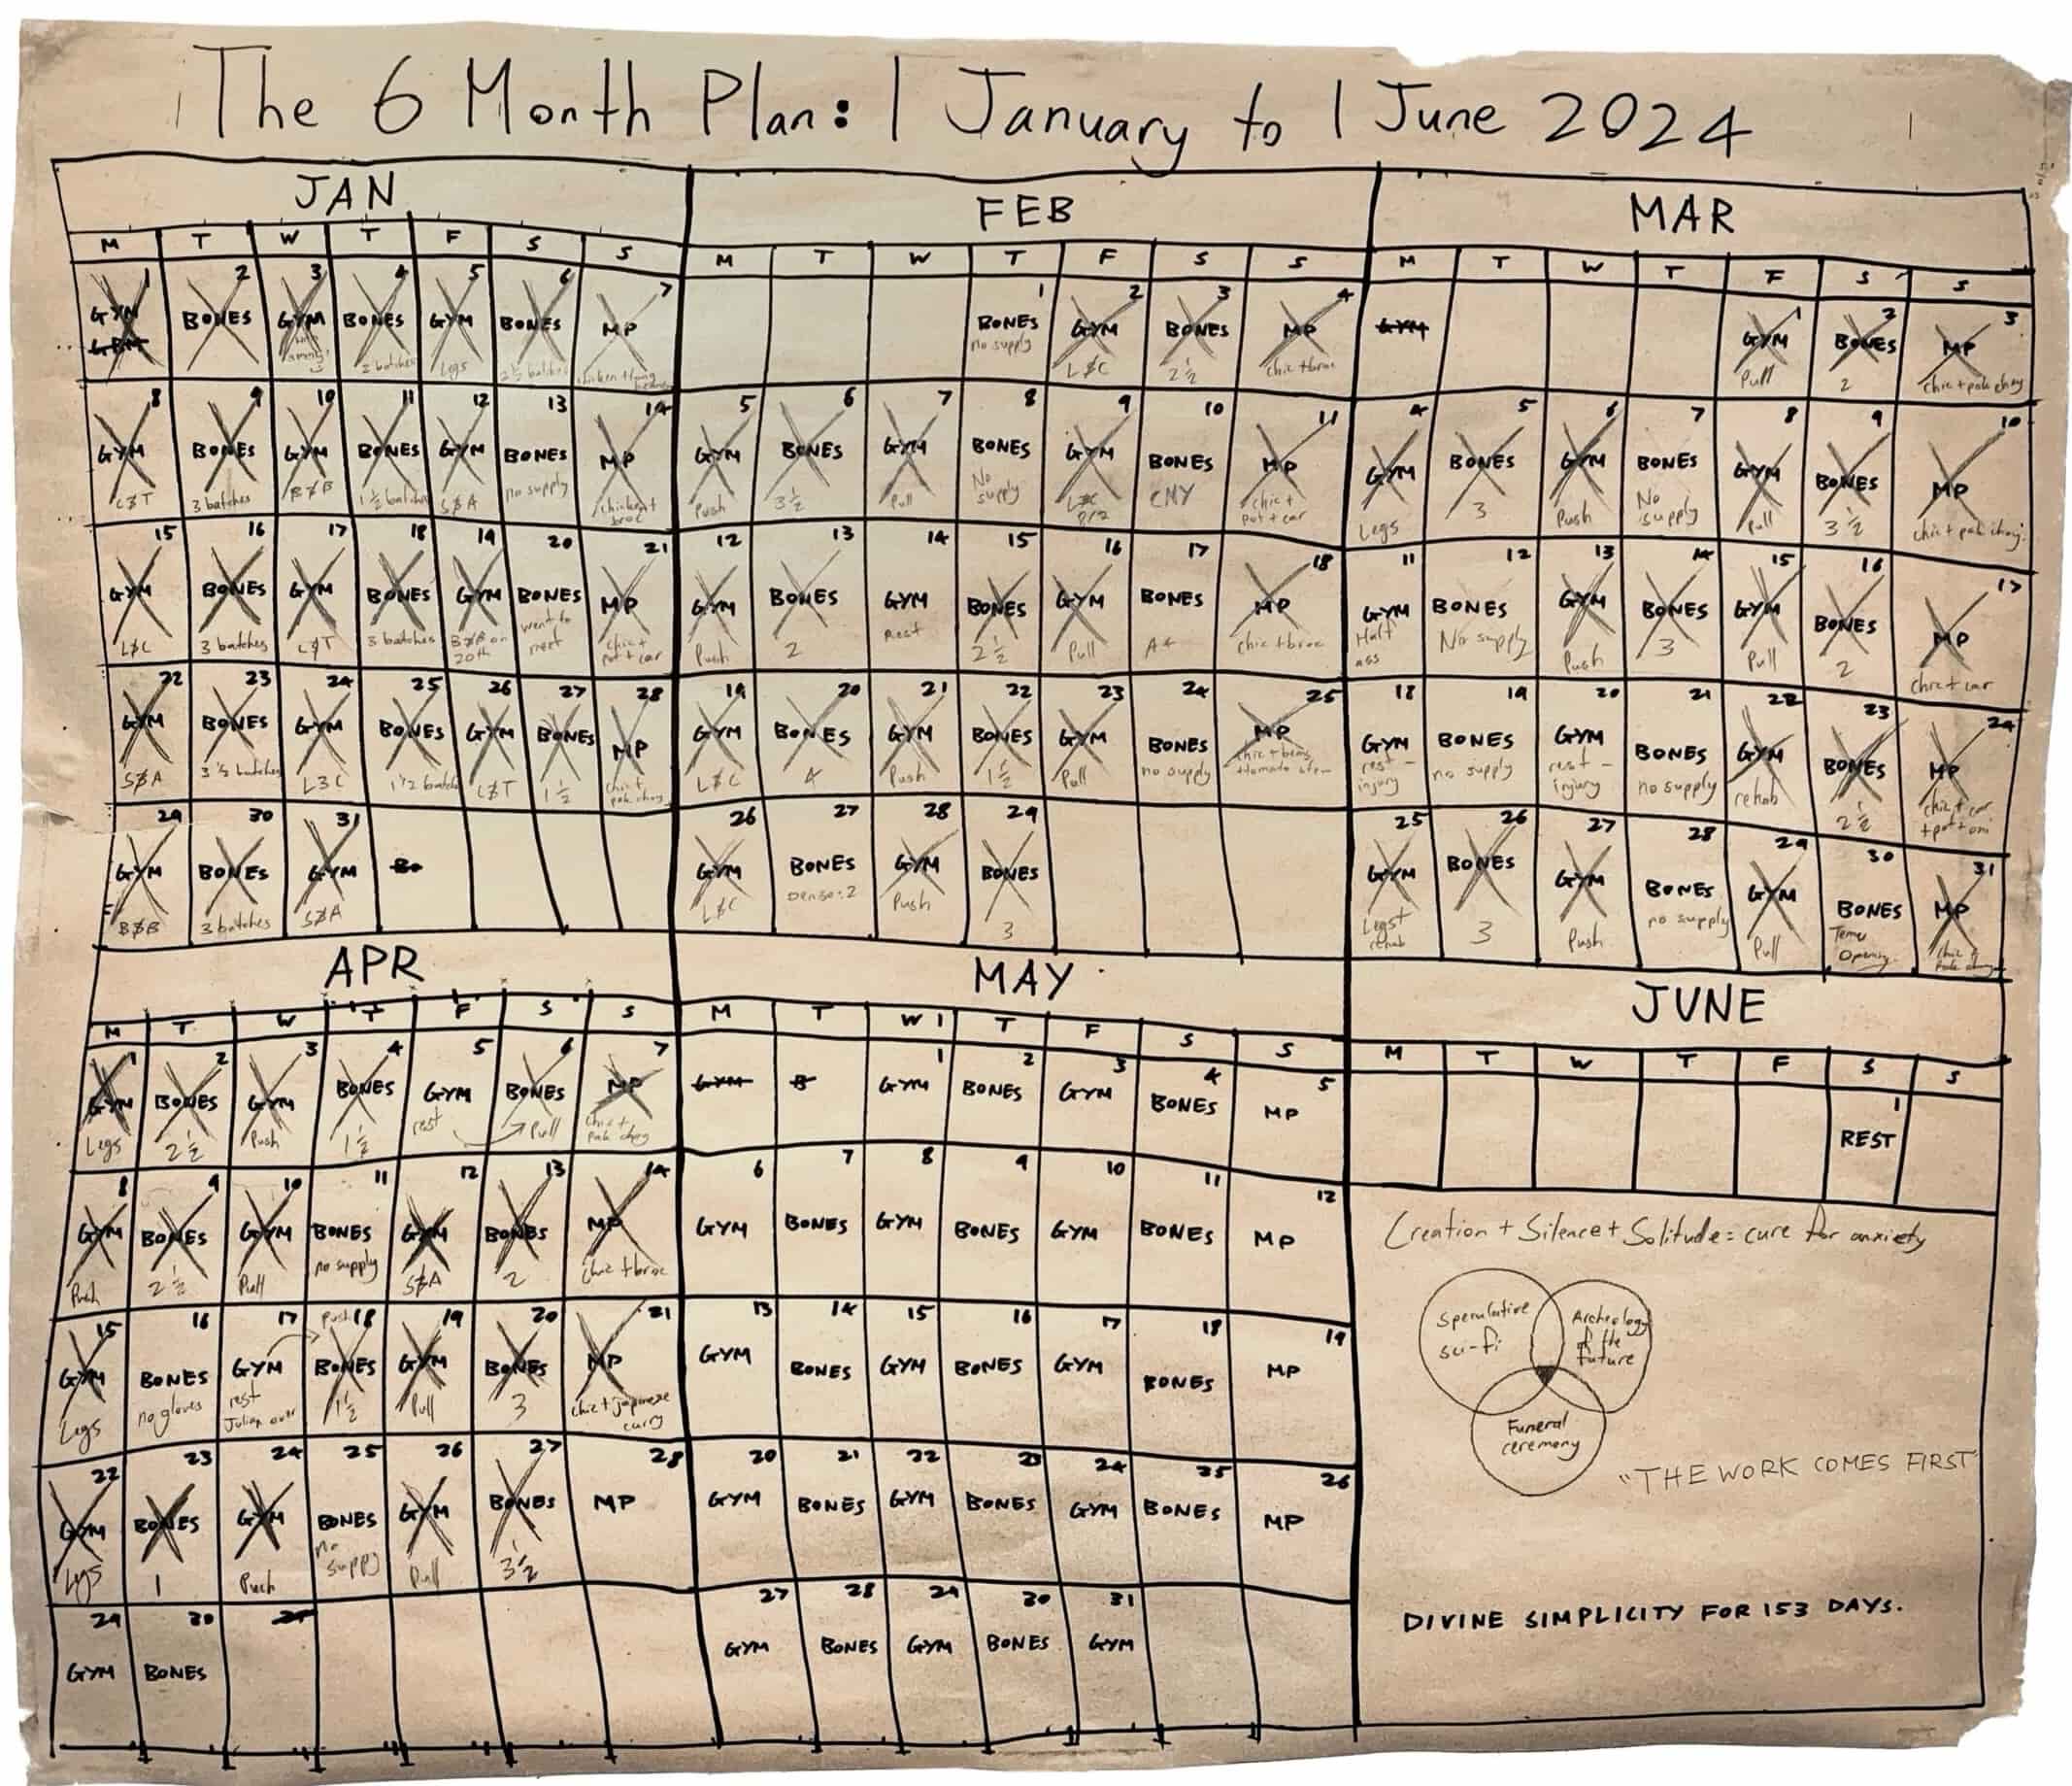 The 6 Month Plan: 1 January to 1 June 2024
JAN
M T W T F S S
1 2 3 4 5 6 7
GYM BONES GYM BONES GYM BONES MP
2 batches Legs 2 ½ batches chicken +
8 9 10 11 12 13 14
GYM BONES GYM BONES GYM BONES MP
C&T 3 batches B&B 1 ½ batches S&A no supply chicken + broc
15 16 17 18 19 20 21
GYM BONES GYM BONES GYM BONES MP
L&C 3 batches C&T 3 batches B&B on 20th went to meet chic + pot + car
22 23 24 25 26 27 28
GYM BONES GYM BONES GYM BONES MP
S&A 3 ½ batches L&C 1 ½ batches C&T 1 ½ chic + pak choy
29 30 31
GYM BONES GYM Bo
B&B 3 batches S&A
FEB
M T W T F S S
1 2 3 4
BONES GYM BONES MP
no supply L&C 2 ½ chic + broc
5 6 7 8 9 10 11
GYM BONES GYM BONES GYM BONES MP
Push 3 ½ Pull No supply L&C CNY chic + pot + car
12 13 14 15 16 17 18
GYM BONES GYM BONES GYM BONES MP
Push 2 Rest 2 ½ Pull A4 chic + broc
19 20 21 22 23 24 25
GYM BONES GYM BONES GYM BONES MP
L&C 4 Push 1 ½ Pull no supply chic + beans
26 27 28 29
GYM BONES GYM BONES
L&C Dense: 2 Push 3
MAR
M T W T F S S
1 2 3
GYM GYM BONES MP
Pull 2 chic + pak choy
4 5 6 7 8 9 10
GYM BONES GYM BONES GYM BONES MP
Legs 3 Push No supply Pull 3 ½ chic + pak choy
11 12 13 14 15 16 17
GYM BONES GYM BONES GYM BONES MP
Half ass No supply Push 3 Pull 2 chic + car
18 19 20 21 22 23 24
GYM BONES GYM BONES GYM BONES MP
rest - injury no supply rest - injury no supply rehab 2 ½ chic + car + pot + oni
25 26 27 28 29 30 31
GYM BONES GYM BONES GYM BONES MP
Legs + rehab 3 Push no supply Pull Temu Opening chic + pak choy
APR
M T W T F S S
1 2 3 4 5 6 7
GYM BONES GYM BONES GYM BONES MP
Legs 2 ½ Push 1 ½ rest Pull chic + pak choy
8 9 10 11 12 13 14
GYM BONES GYM BONES GYM BONES MP
Push 2 ½ Pull no supply S&A 2 chic + broc
15 16 17 Push 18 19 20 21
GYM BONES GYM BONES GYM BONES MP
Legs no gloves rest Julian over 1 ½ Pull 3 chic + japanese curry
22 23 24 25 26 27 28
GYM BONES GYM BONES GYM BONES MP
Legs 1 Push no supply Pull 3 ½
29 30
GYM BONES
MAY
M T W T F S S
1 2 3 4 5
GYM B GYM BONES GYM BONES MP
6 7 8 9 10 11 12
GYM BONES GYM BONES GYM BONES MP
13 14 15 16 17 18 19
GYM BONES GYM BONES GYM BONES MP
20 21 22 23 24 25 26
GYM BONES GYM BONES GYM BONES MP
27 28 29 30 31
GYM BONES GYM BONES GYM
JUNE
M T W T F S S
1
REST
Creation + Silence + Solitude = cure for anxiety
Speculative sci-fi
Archeology of the future
Funeral ceremony
"THE WORK COMES FIRST"
DIVINE SIMPLICITY FOR 153 DAYS.